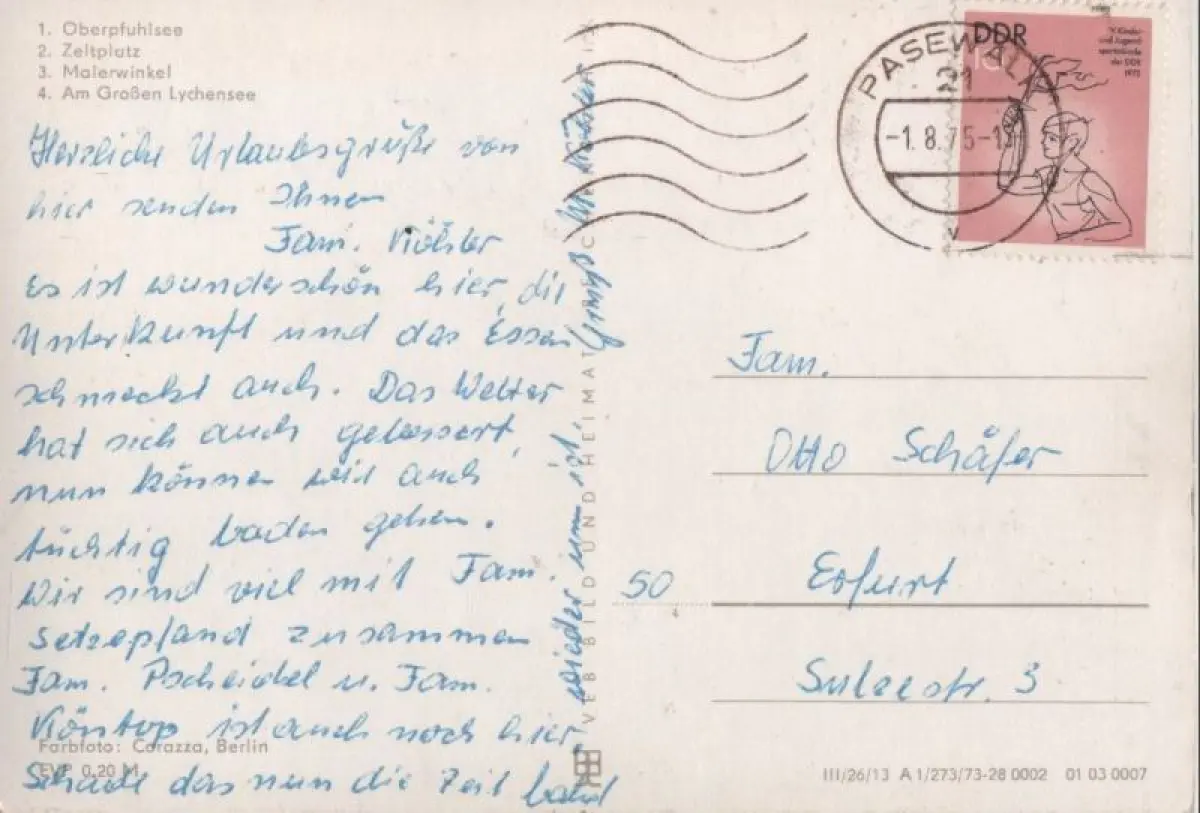 1. Oberpfuhlsee
2. Zeltplatz
3. Malerwinkel
4. Am Großen Lychensee
Herzliche Urlaubsgrüße von
hier senden Ihnen
Fam.
Es ist wunderschön hier, die
Unterkunft und das Essen
schmeckt auch. Das Wetter
hat sich auch gebessert,
nun können wir auch
tüchtig baden gehen.
Wir sind viel mit Fam.
Setzepfand zusammen
Fam. u. Fam.
Köntop ist auch noch hier.
Schade das nun die Zeit bald
wieder um ist.
Farbfoto: Corazza, Berlin
EVP 0,20 M
VEB BILD UND HEIMAT
PASEWALK
21
-1.8.75-1
v
DDR
10
V. Kinder-
und Jugend-
spartakiade
der DDR
1975
Fam.
Otto Schäfer
50 Erfurt
Sulzestr. 3
III/26/13 A 1/273/73-28 0002 01 03 0007